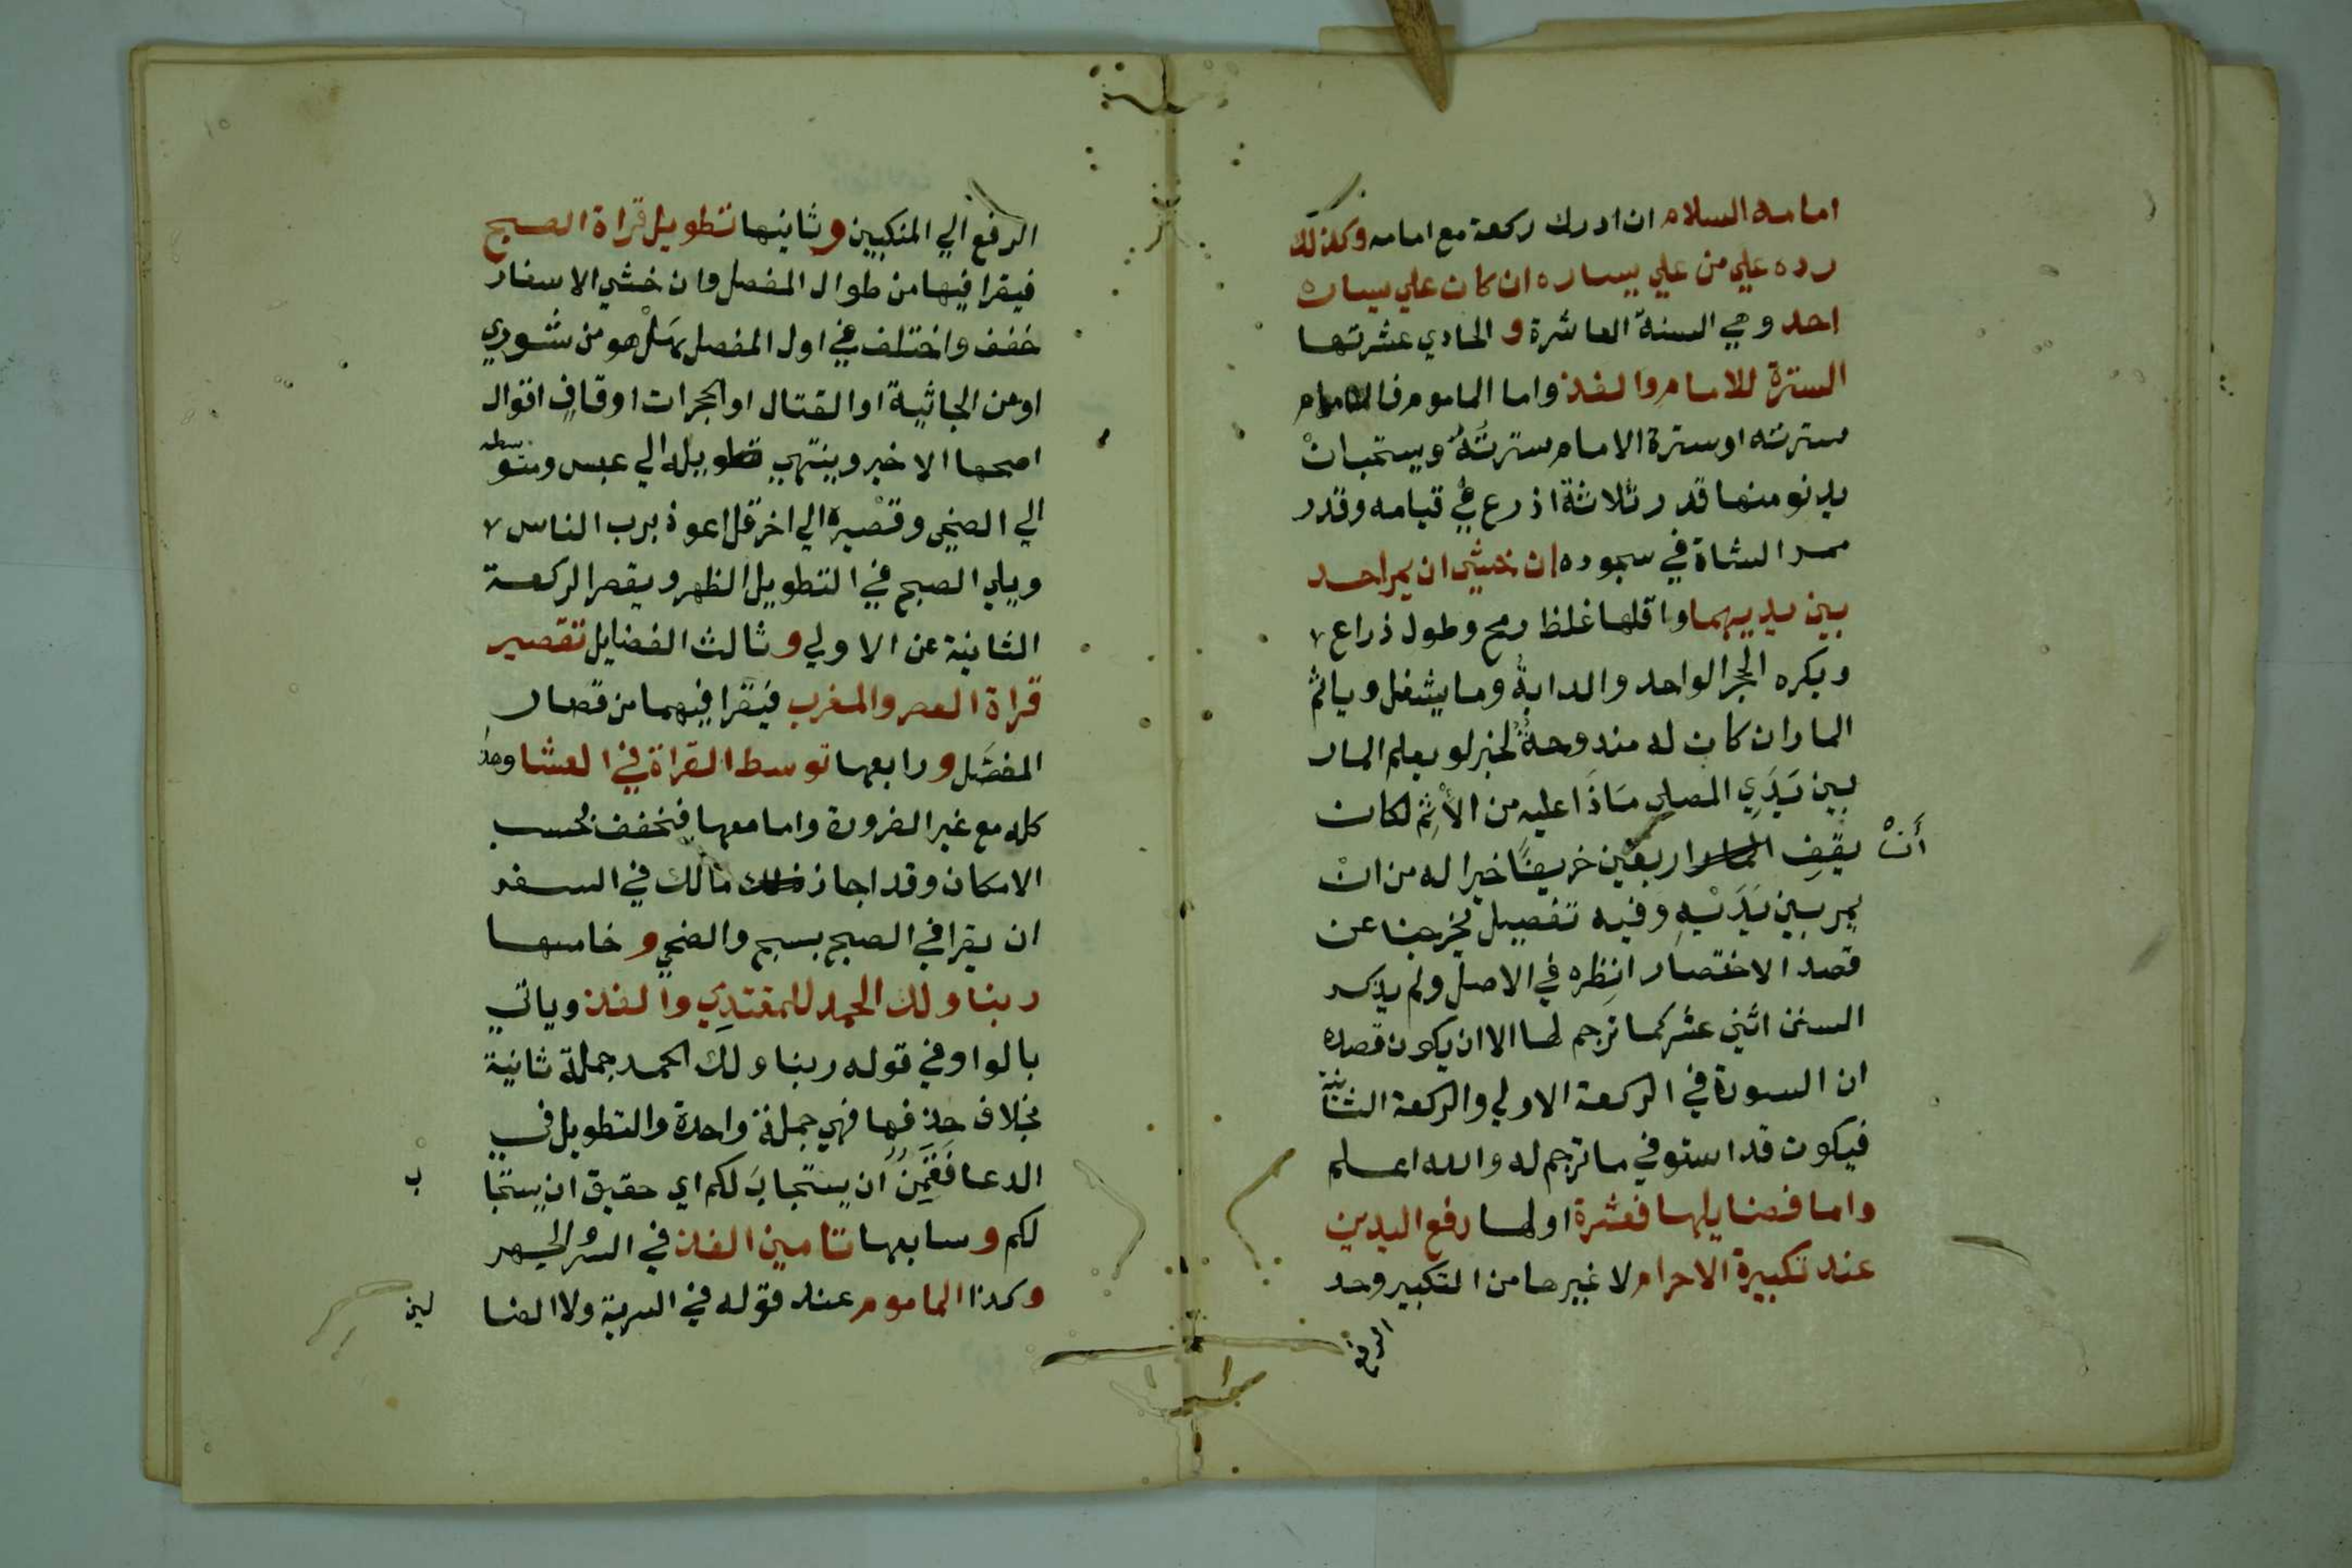 امامه السلام ان ادرك ركعة مع امامه وكذلك
رده علي من علي يساره ان كان علي يساره
احد وهي السنة العاشرة و الحادي عشرتها
السترة للامام والفذ واما الماموم فالامام
سترته او سترة الامام سترتُهُ ويستحب انْ
يدنو منها قدر ثلاثة اذرع في قيامه وقدر
ممر الشاة في سجوده ان خشي ان يمر احد
بين يديهما واقلها غلظ رمح وطول ذراع
ويكره الحجر الواحد والدابةُ وما يشغل وياثم
المار ان كان له مندوحةٌ لخبر لو يعلم المار
بين يَدَيِ المصلي مَاذَا عليه من الأثِم لكان
أَنْ يقفِ اربعين خريفًا خيرا له من انْ
يمر بين يَدَيْهِ وفيه تفصيل يخرجنا عن
قصد الاختصار انظره في الاصل ولم يذكر
السنن اثني عشر كما ترجم لها الا ان يكون قصده
ان السورة في الركعة الاولي والركعة الثانية
فيكون قد استوفي ما ترجم له والله اعلم
واما فضايلها فعشرة اولها رفع اليدين
عند تكبيرة الاحرام لا غيرها من التكبير وحد
الرفع
الرفع الي المنكبين وثانيها تطويل قراة الصبح
فيقرا فيها من طوال المفصل وان خشي الاسفار
خفف واختلف في اول المفصل هَلْ هو من شوري
او من الجاثية او القتال او الحجرات او قافٍ اقوال
اصحها الاخير وينتهي تطويله الي عبس ومتوسطه
الي الضحى وقصْيره الي اخر قل اعوذ برب الناس
ويلي الصبح في التطويل الظهر ويقصر الركعة
الثانية عن الاولي وثالث الفضايل تقصير
قراة العصر والمغرب فيقرا فيهما من قصار
المفصَّل ورابعها توسط القراة في العشا وهذا
كله مع غير الضرورة واما معها فنخفف بحسب
الامكان وقد اجاز مالك في السفر
ان يقرا في الصبح بسبح والضحي و خامسها
ربنا ولك الحمد للمقتدِي والفذ وياتي
بالواو في قوله ربنا ولك الحمد جملة ثانية
بخلاف حذفها فهي جملة واحدة والتطويل في
الدعا فَقَمِنٌ ان يستجابَ لكم اي حقيق ان يستجا ب
لكم وسابعها تامين الفذ في السر والجهر
وكذا الماموم عند قوله في السرية ولا الضا لين